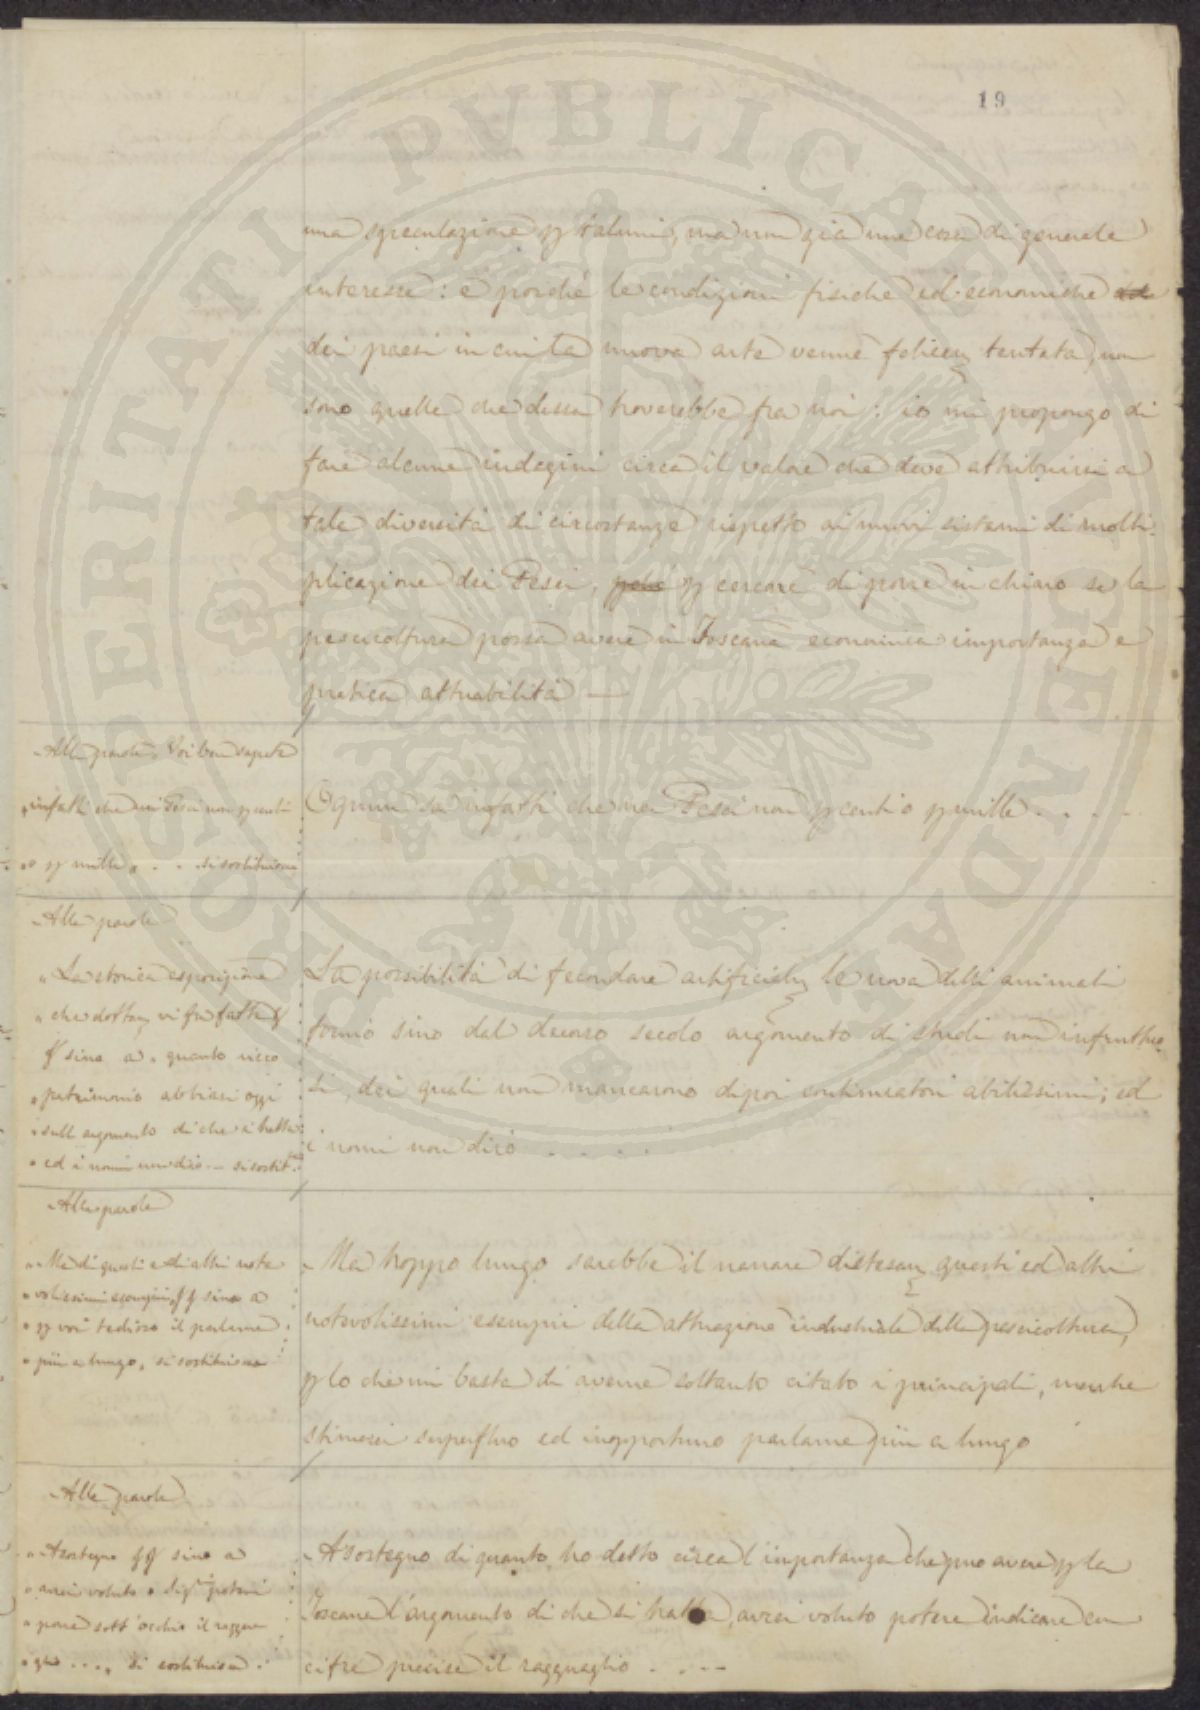 19
una speculazione p taluni, ma non già una cosa di generale
interesse: e poiché le condizioni fisiche ed economiche
dei paesi in cui la nuova arte venne felicem tentata, non
sono quelle che dessa troverebbe fra noi: io mi propongo di
fare alcune indagini circa il valore che deve attribuirsi a
tale diversità di circostanze rispetto ai nuovi sistemi di molti-
plicazione dei Pesci, pché p cercare di porre in chiaro se la
pescicoltura possa avere in Toscana economica importanza e
pratica attuabilità —
Alle parole, Voi ben sapete
infatti che nei Pesci non p centi
o p mille, . . . si sostituisca
Ognun sa infatti che nei Pesci non p centi o p mille . . . .
Alle parole
„ La storica esposizione
„ che dottam vi fu fatta
sino a „ quanto ricco
„ patrimonio abbiasi oggi
„ sull argomento di che si tratta
„ ed i nomi non dirò — si sostit.
La possibilità di fecondare artificialm le uova delli animali
fornió sino dal decorso secolo argomento di studi non infruttuo
si, dei quali non mancarono dipoi continuatori abilissimi; ed
i nomi non dirò . . . . .
Alle parole
„ Ma di questi e di altri note
„ volissimi esempi, sino a
„ p voi tedioso il parlarne
„ più a lungo, si sostituisca
Ma troppo lungo sarebbe il narrare distesam questi ed altri
notevolissimi esempii della attuazione industriale della pescicoltura,
p lo che mi basta di averne soltanto citato i principali, mentre
stimerei superfluo ed inopportuno parlarne più a lungo
Alle parole
„ A sostegno sino a
„ avrei voluto o Sigri potervi
„ porre sott'occhio il raggua
„ glio . . . , si sostituisca .
A sostegno di quanto ho detto circa l'importanza che può avere p la
Toscana l'argomento di che si tratta, avrei voluto potere indicare con
cifre precise il ragguaglio . . . —
PROSPERITATI PVBLICAE AVGENDAE